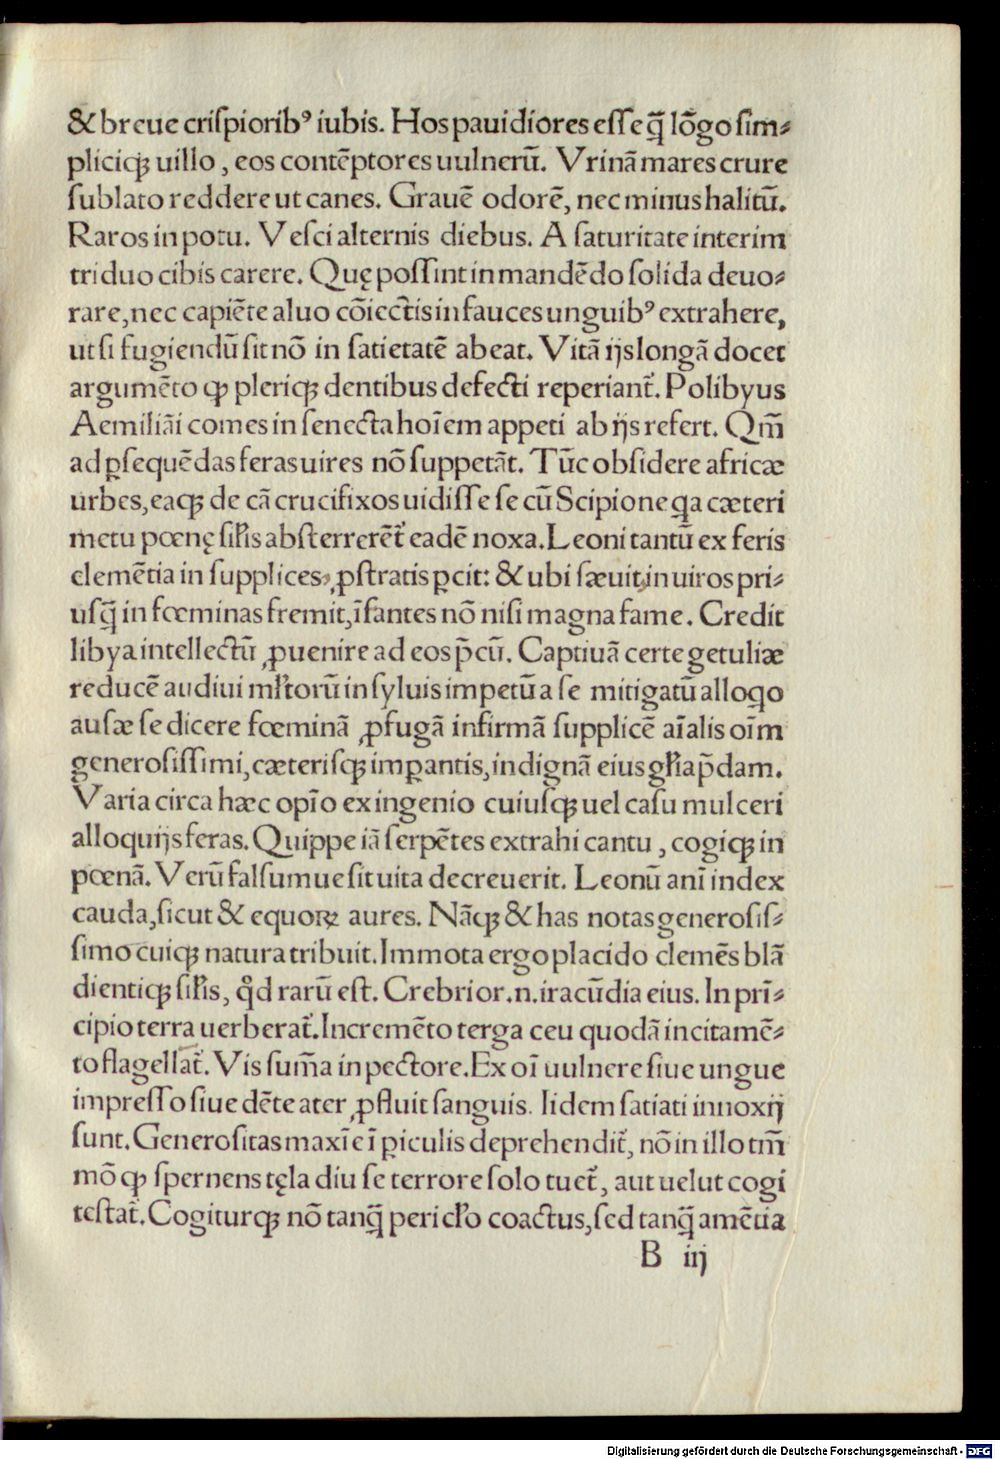 & breue criſpiorib⁹ iubis. Hos pauidiores eſſe q̄̃ lōgo ſim⸗
pliciqꝫ uillo, eos contēptores uulnerū. Vrinā mares crure
ſublato reddere ut canes. Grauē odorē, nec minus halitū.
Raros in potu. Veſci alternis diebus. A ſaturitate interim
triduo cibis carere. Quę poſſint in mandēdo ſolida deuo⸗
rare, nec capiēte aluo cōiectis in fauces unguib⁹ extrahere,
ut ſi fugiendū ſit nō in ſatietatē abeat. Vitā ijs longā docet
argumēto ꝙ pleriqꝫ dentibus defecti reperiant᷑. Polibyus
Aemiliāi comes in ſenecta hoīem appeti ab ijs refert. Qm̄
ad ꝑſequēdas feras uires nō ſuppetāt. Tūc obſidere africæ
urbes, eaqꝫ de cā crucifixos uidiſſe ſe cū Scipione qa cæteri
metu pœnę ſiłis abſterrerēt᷑ eadē noxa. Leoni tantū ex feris
clemētia in ſupplices, ꝓſtratis ꝑcit: & ubi ſæuit, in uiros pri⸗
uſq̄̃ in fœminas fremit, īfantes nō niſi magna fame. Credit
libya intellectū ꝓuenire ad eos p̄cū. Captiuā certe getuliæ
reducē audiui młtorū in ſyluis impetū a ſe mitigatū alloqo
auſæ ſe dicere fœminā ꝓfugā infirmā ſupplicē aīalis oīm
generoſiſſimi, cæteriſqꝫ imꝑantis, indignā eius gł̃ia p̄dam.
Varia circa hæc opīo ex ingenio cuiuſqꝫ uel caſu mulceri
alloquijs feras. Quippe iā ſerpētes extrahi cantu, cogiqꝫ in
pœnā. Verū falſumue ſit uita decreuerit. Leonū anī index
cauda, ſicut & equoꝝ aures. Nāqꝫ & has notas generoſiſ⸗
ſimo cuiqꝫ natura tribuit. Immota ergo placido clemēs blā
dientiqꝫ ſiłis, qd̓ rarū eſt. Crebrior .n. iracūdia eius. In prī⸗
cipio terra uerberat᷑. Incremēto terga ceu quodā incitamē⸗
to flagellat᷑. Vis ſum̄a in pectore. Ex oī uulnere ſiue ungue
impreſſo ſiue dēte ater ꝓfluit ſanguis. Iidem ſatiati innoxij
ſunt. Generoſitas maxīe ī ꝑiculis deprehendit᷑, nō in illo tm̄
mō ꝙ ſpernens tęla diu ſe terrore ſolo tuet᷑, aut uelut cogi
teſtat᷑. Cogiturqꝫ nō tanq̄̃ pericło coactus, ſed tanq̄̃ amētia
B iij
Digitalisierung gefördert durch die Deutsche Forschungsgemeinschaft - DFG